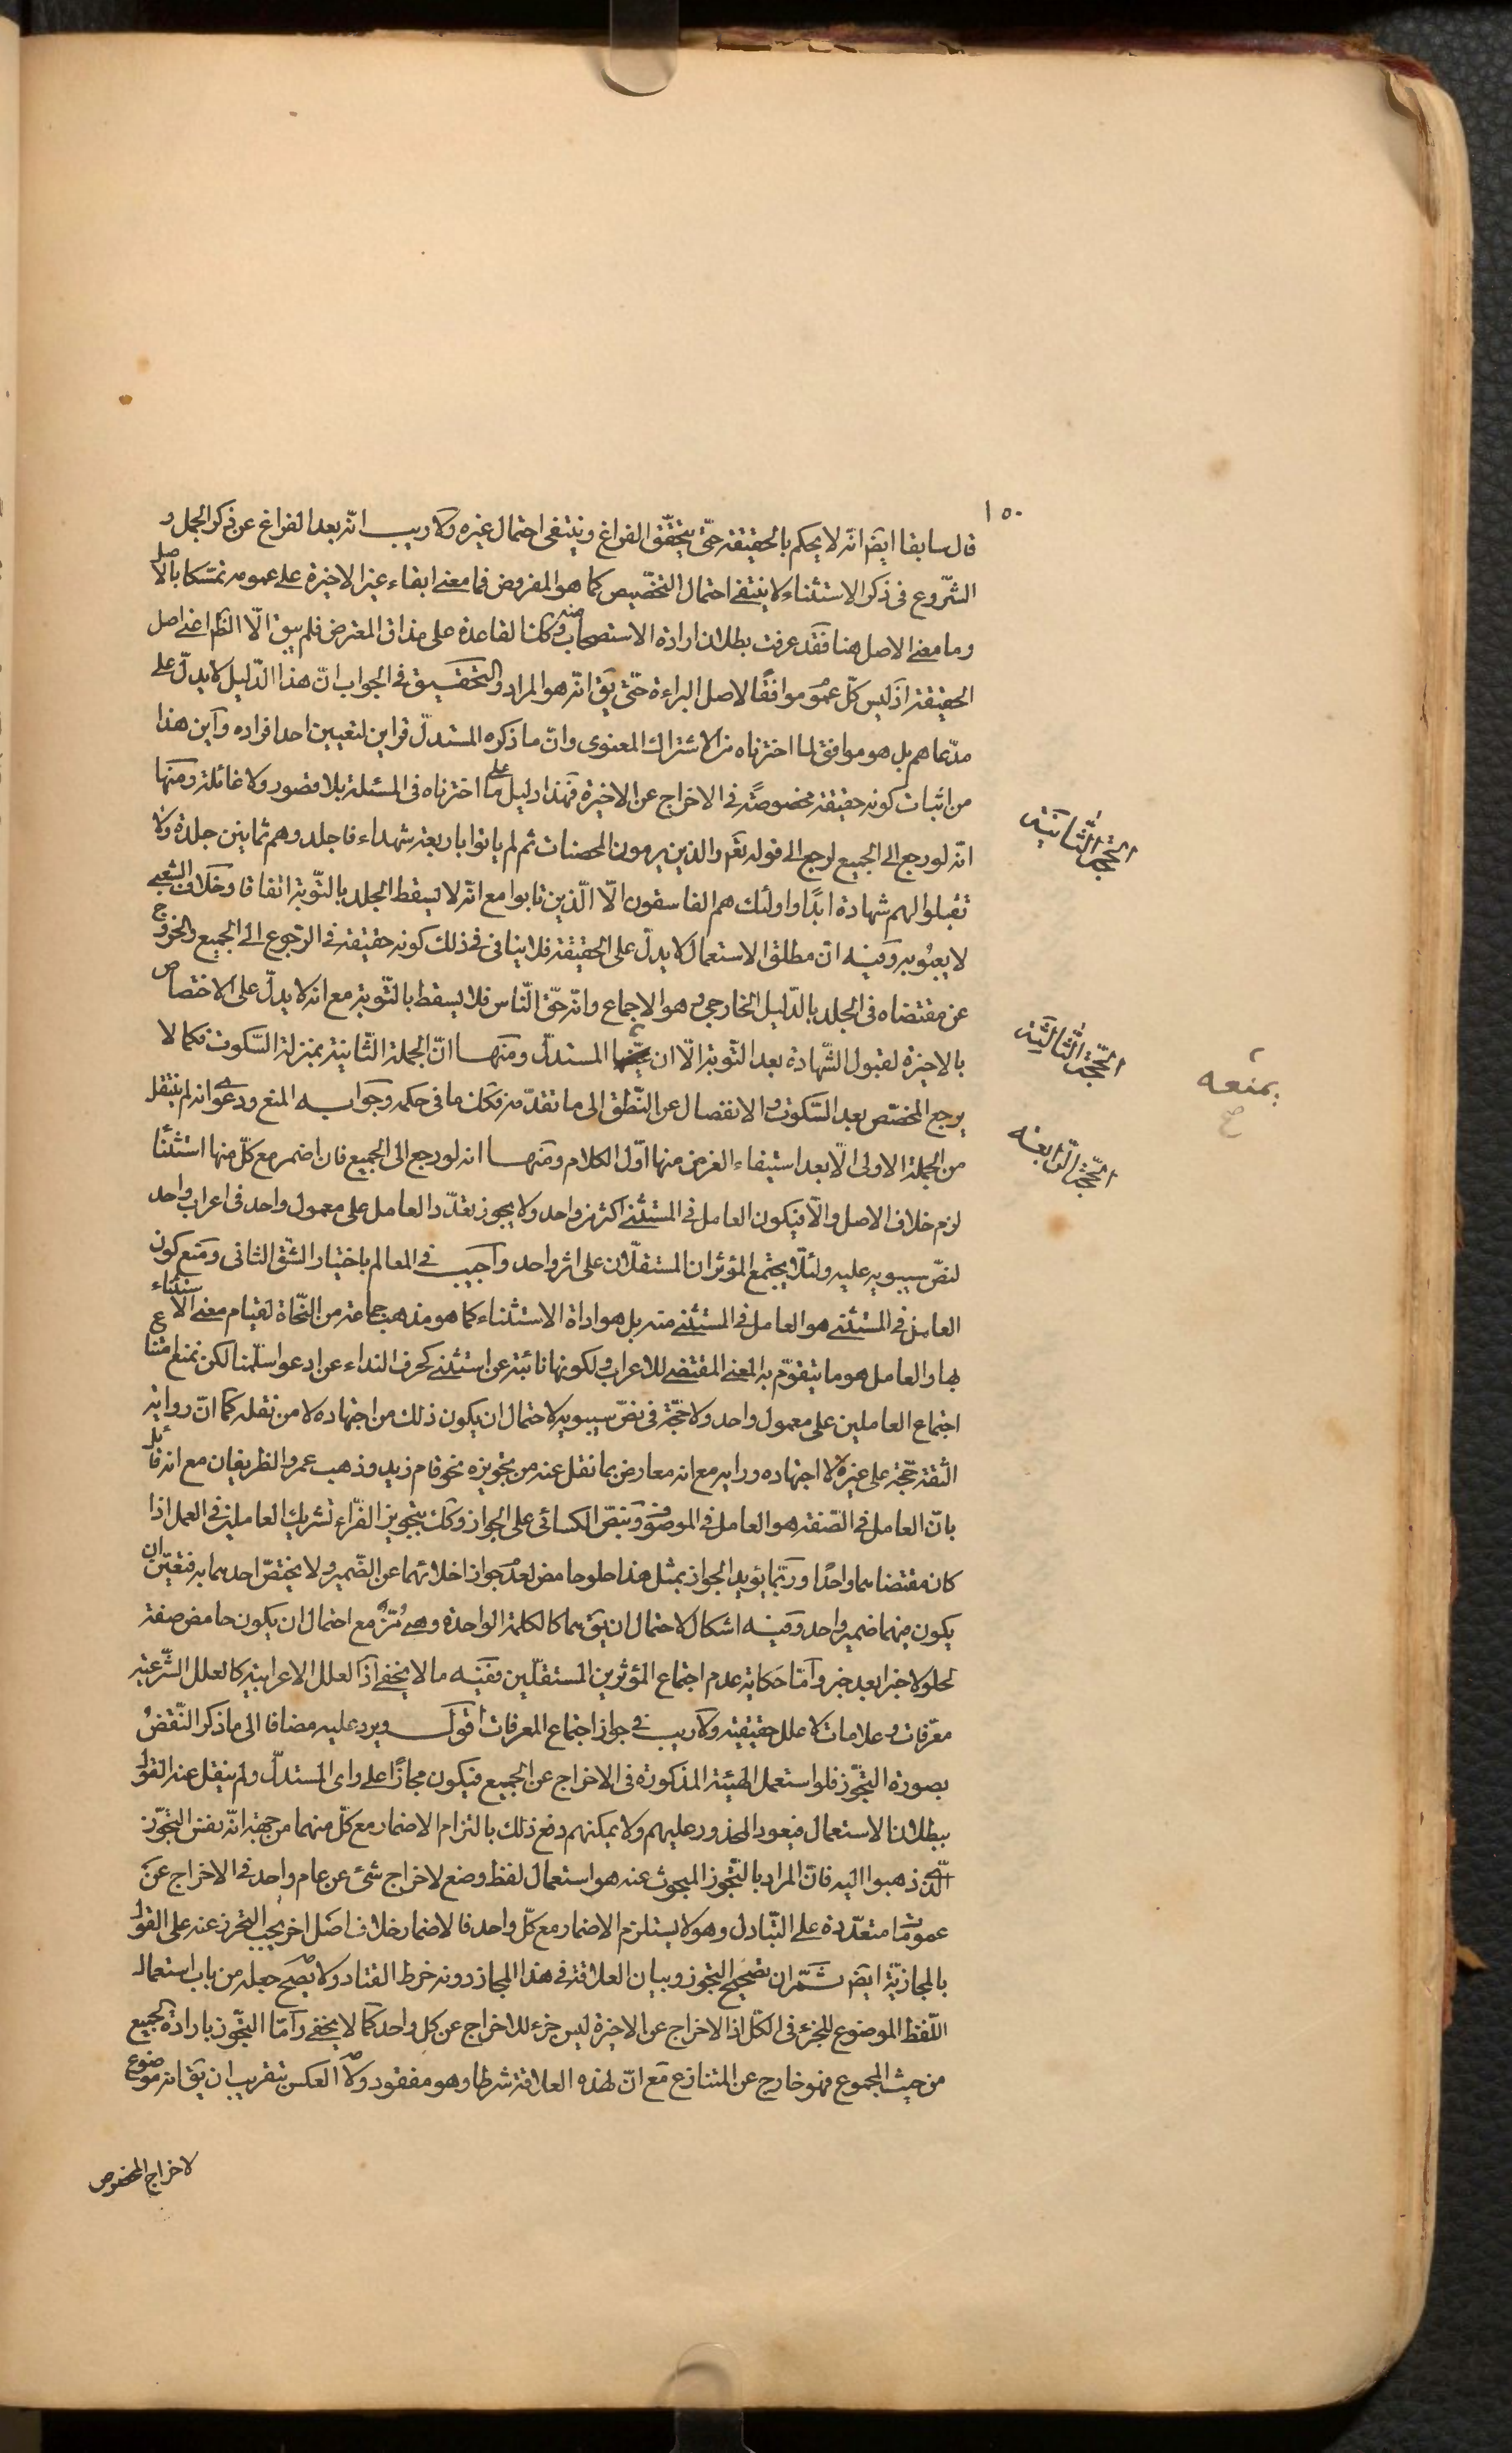 ١٥٠
قال سابقا ايضا انّه لا يحكم بالحقيقة حتّى يتحقّق الفراغ وينتفى احتمال غيره ولا ريب انّه بعد الفراغ عن ذكر الجمل و
الشّروع فى ذكر الاستثناء لا ينتفى احتمال التخصيص كما هو المفروض فما معنى ابقاء غير الاخيرة على عمومه تمسّكا بالاصل
وما معنى الاصل هنا فقد عرفت بطلان ارادة الاستصحاب منه وكذا القاعدة على مذاق المعترض فلم يبق الّا الظّم اعنى اصل
الحقيقة اذ ليس كلّ عموم موافقًا لاصل البراءة حتّى يق انّه هو المراد والتحقيق فى الجواب انّ هذا الدّليل لا يدلّ على
مدّعاهم بل هو موافق لما اخترناه من الاشتراك المعنوى وانّ ما ذكره المستدلّ قراين لتعيين احد افراده واين هذا
من اثبات كونه حقيقة مخصوصةً فى الاخراج عن الاخيرة فهذا دليل على ما اخترناه فى المسئلة بلا قصور ولا غائلة ومنها
انّه لو رجع الى الجميع لرجع الى قوله تعم والذين يرمون المحصنات ثم لم ياتوا باربعة شهداء فاجلدوهم ثمانين جلدة ولا
تقبلوا لهم شهادة ابدًا واولئك هم الفاسقون الّا الّذين تابوا مع انّه لا يسقط الجلد بالتّوبة اتفاقا وخلاف الشعبى
لا يعبؤ به وفيه انّ مطلق الاستعمال لا يدلّ على الحقيقة فلا ينافى ذلك كونه حقيقة فى الرّجوع الى الجميع والخروج
عن مقتضاه فى الجلد بالدّليل الخارجى وهو الاجماع وانّه حقّ النّاس فلا يسقط بالتّوبة مع انّه لا يدلّ على الاختصاص
بالاخيرة لقبول الشّهادة بعد التّوبة الّا ان المستدلّ ومنها انّ الجملة الثّانية بمنزلة السّكوت فكما لا
يرجع المختصّ بعد السّكوت والانفصال عن النّطق الى ما تقدّمه فكك ما فى حكمه وجوابه المنع ودعوى انه لم ينتقل
من الجملة الاولى الّا بعد استيفاء الغرض منها اوّل الكلام ومنها انه لو رجع الى الجميع فان اضمر مع كلّ منها استثنا
لزم خلاف الاصل والّا فيكون العامل فى المستثنى اكثر من واحد ولا يجوز تعدّد العامل على معمول واحد فى اعراب واحد
لنصّ سيبويه عليه ولئلّا يجتمع المؤثران المستقلّان على اثر واحد واجيب فى المعالم باختيار الشّق الثانى ومنع كون
العامل فى المستثنى هو العامل فى المستثنى منه بل هو اداة الاستثناء كما هو مذهب جماعة من النّحاة لقيام معنى الاستثناء
بها والعامل هو ما يتقوّم به المعنى المقتضى للاعراب ولكونها نائبة عن استثنى كحرف النداء عن ادعوا سلّمنا لكن نمنع امتناع
اجتماع العاملين على معمول واحد ولا حجّة فى نصّ سيبويه لاحتمال ان يكون ذلك من اجتهاده لا من نقله كما انّ رواية
الثقة حجّة على غيره لا اجتهاده ورايه مع انه معارض بما نقل عنه من تجويزه نحو قام زيد وذهب عمرو الظريفان مع انه قائل
بانّ العامل فى الصّفة هو العامل فى الموصوف وبنصّ الكسائى على الجواز وكك بتجويز الفرّاء تشريك العاملين فى العمل اذا
كان مقتضاهما واحدًا وربّما يؤيد الجواز بمثل هذا حلو حامض لعدم جواز اخلائهما عن الضّمير ولا يختصّ احدهما به فتعيّن ان
يكون فيهما ضمير واحد وفيه اشكال لاحتمال ان يق هما كالكلمة الواحدة وهى مُزّ مع احتمال ان يكون حامض صفة
لحلو لا خبرا بعد خبر وامّا حكاية عدم اجتماع المؤثرين المستقلّين ففيه ما لا يخفى اذ العلل الاعرابية كالعلل الشّرعية
معرّفات وعلامات لا علل حقيقية ولا ريب فى جواز اجتماع المعرفات اقول ويرد عليه مضافا الى ما ذكر النّقض
بصورة التّجوّز فلو استعمل الهيئة المذكورة فى الاخراج عن الجميع فيكون مجازًا على راى المستدلّ ولم ينقل عنه القول
ببطلان الاستعمال فيعود المحذور عليهم ولا يمكنهم دفع ذلك بالتزام الاضمار مع كلّ منهما من جهة انّه نفس التجوّز
الّذى ذهبوا اليه فانّ المراد بالتّجوز المبحوث عنه هو استعمال لفظ وضع لاخراج شئ عن عام واحد فى الاخراج عن
عمومات متعدّدة على التّبادل وهو لا يستلزم الاضمار مع كلّ واحد فالاضمار خلاف اصل اخر يجب التحرز عنه على القول
بالمجازيّة ايضا ثمّ ان تصحيح التجوز وبيان العلاقة فى هذا المجاز دونه خرط القتاد ولا يصح جعله من باب استعمال
اللّفظ الموضوع للجزء فى الكلّ اذ الاخراج عن الاخيرة ليس جزء للاخراج عن كل واحد كما لا يخفى وامّا التجّوز بارادة الجميع
من حيث المجموع فهو خارج عن المتنازع مع انّ لهذه العلاقة شرطا وهو مفقود ولا العكس بتقريب ان يق انه موضوع
لاخراج المخصوص
الحجّة الثّانية
الحجّة الثّالثة
الحجّة الرّابعة
يمنعه